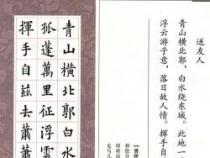 送友人
青山横北郭，白水绕东城。此地一
浮云游子意，落日故人情。挥手自
青山橫北郭白水
孤蓬萬里征浮雲
揮手自茲去蕭蕭